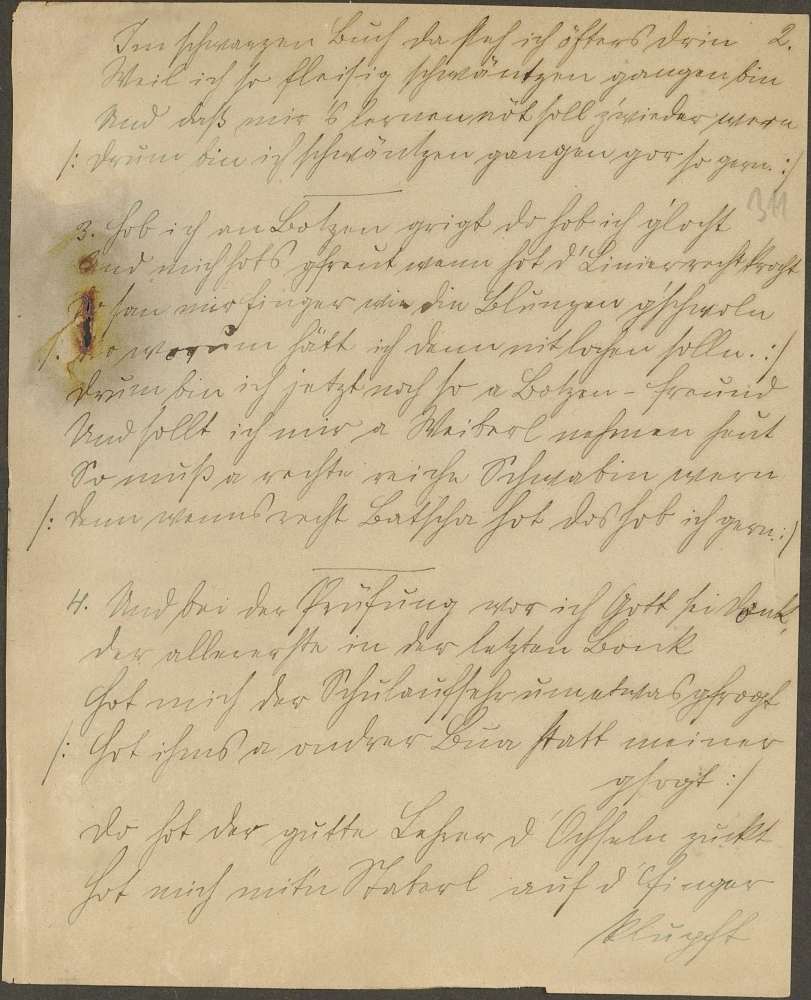 Im schwarzen Buch da steh ich öfters drin 2.
Weil ich so fleißig schwäntzen gangen bin
Und daß mir 's lernen nöt soll z'wieder wern
/: Drum bin ich schwäntzen gangen gor so gern. :/
311
3. Hob ich an Botzen grigt do hob ich g'locht
und mich hots gfreut wenn hot d' Linier recht krocht
san mir Finger wie die Blunzen g'schwoln
/: worum hätt ich denn nit lochen solln. :/
Drum bin ich jetzt noch so a Botzen-freund
Und sollt ich mir a Weiberl nehmen heut
So muß a rechte reiche Schwabin wern
/: denn wenns recht Batscha hot dos hob ich gern. :/
4. Und bei der Prüfung wor ich Gott sei Donk,
der allererste in der letzten Bonk
Hot mich der Schulaufsehr um etwas gfrogt
/: Hot ihms a ondrer Bua statt meiner
gsogt :/
Do hot der gutte Lehrer d' Ochseln zuckt
Hot mich mit'n Staberl auf d Finger
klupft